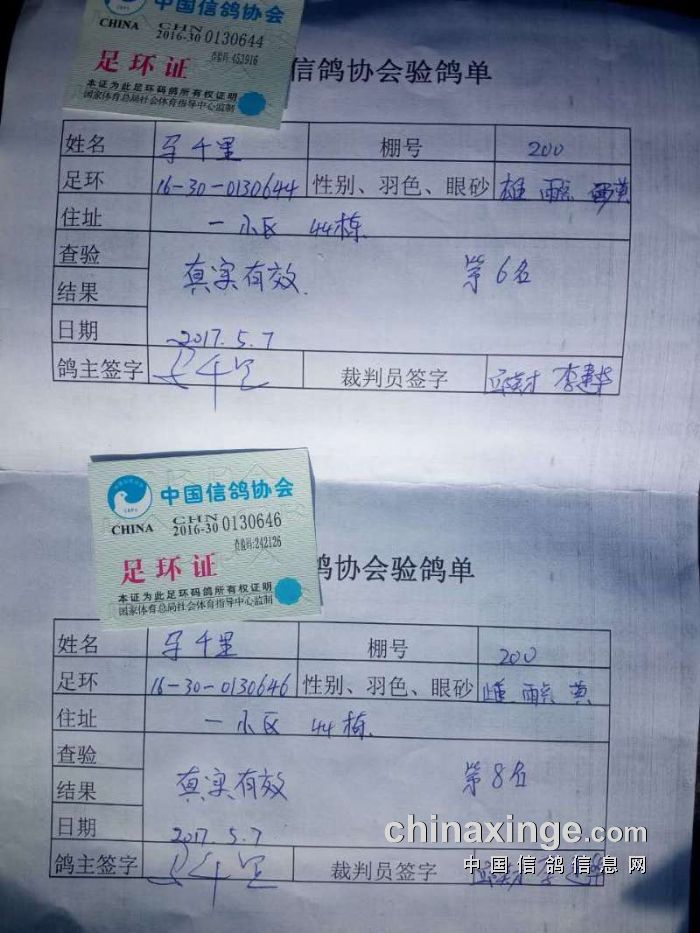 中国信鸽协会
CHINA CHN 2016-30 0130644
查验码:453916
足环证
本证为此足环码鸽所有权证明
国家体育总局社会体育指导中心监制
信鸽协会验鸽单
姓名 千里 棚号 200
足环 16-30-0130644 性别、羽色、眼砂 雄 雨点 黄
住址 一小区 44栋
查验
结果 真实有效 第6名
日期 2017.5.7
鸽主签字 裁判员签字 李建华
中国信鸽协会
CHINA CHN 2016-30 0130646
查验码:242126
足环证
本证为此足环码鸽所有权证明
国家体育总局社会体育指导中心监制
鸽协会验鸽单
姓名 千里 棚号 200
足环 16-30-0130646 性别、羽色、眼砂 雌 雨点 黄
住址 一小区 44栋
查验
结果 真实有效 第8名
日期 2017.5.7
鸽主签字 裁判员签字
chinaxinge.com
中国信鸽信息网